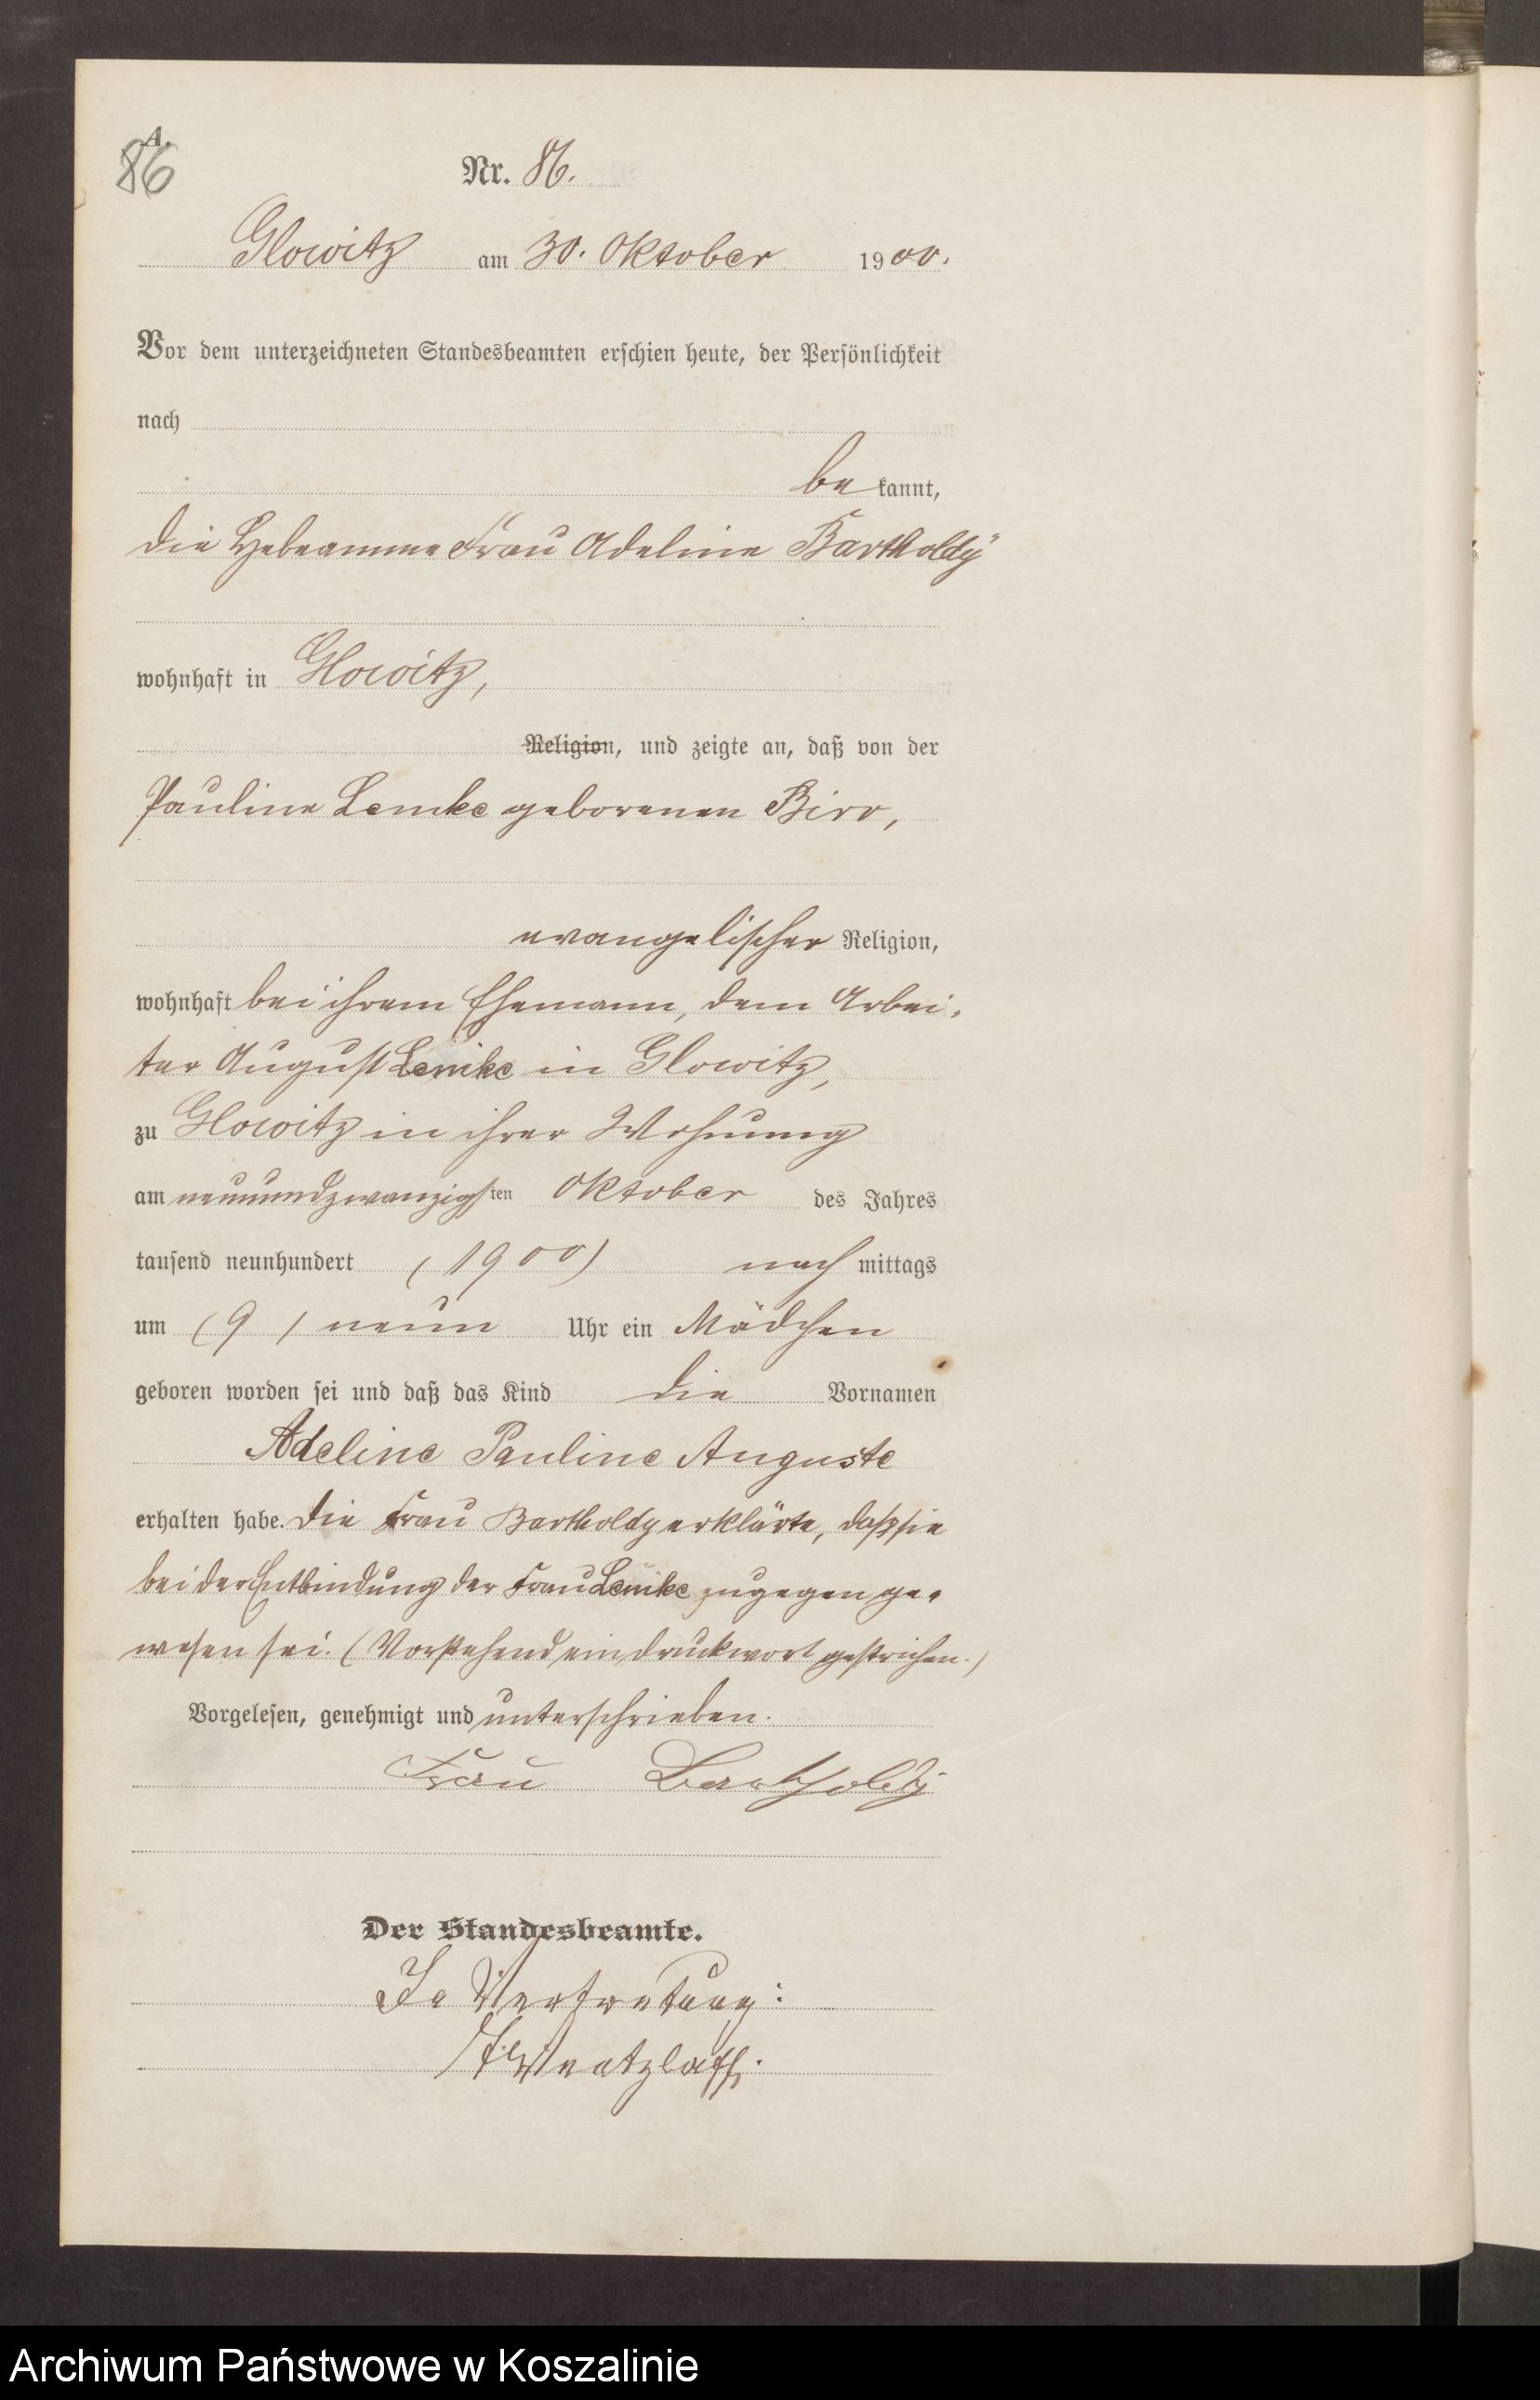 A.
86
Nr. 86.
Glowitz am 30. Oktober 1900.
Vor dem unterzeichneten Standesbeamten erschien heute, der Persönlichkeit
nach
be kannt,
die Hebeamme Frau Adeline Bartholdÿ
wohnhaft in Glowitz,
Religion, und zeigte an, daß von der
Pauline Lemke geborenen Birr,
evangelischer Religion,
wohnhaft bei ihrem Ehemann, dem Arbei-
ter August Lemke in Glowitz,
zu Glowitz in ihrer Wohnung
am neunundzwanzigsten Oktober des Jahres
tausend neunhundert (1900) nach mittags
um (9) neun Uhr ein Mädchen
geboren worden sei und daß das Kind die Vornamen
Adeline Pauline Auguste
erhalten habe. Die Frau Bartholdy erklärte, daß sie
bei der Entbindung der Frau Lemke zugegen ge-
wesen sei. (Vorstehend ein Druckwort gestrichen.)
Vorgelesen, genehmigt und unterschrieben.
Frau Bartholdy
Der Standesbeamte.
In Vertretung:
Wentzlaff.
Archiwum Państwowe w Koszalinie